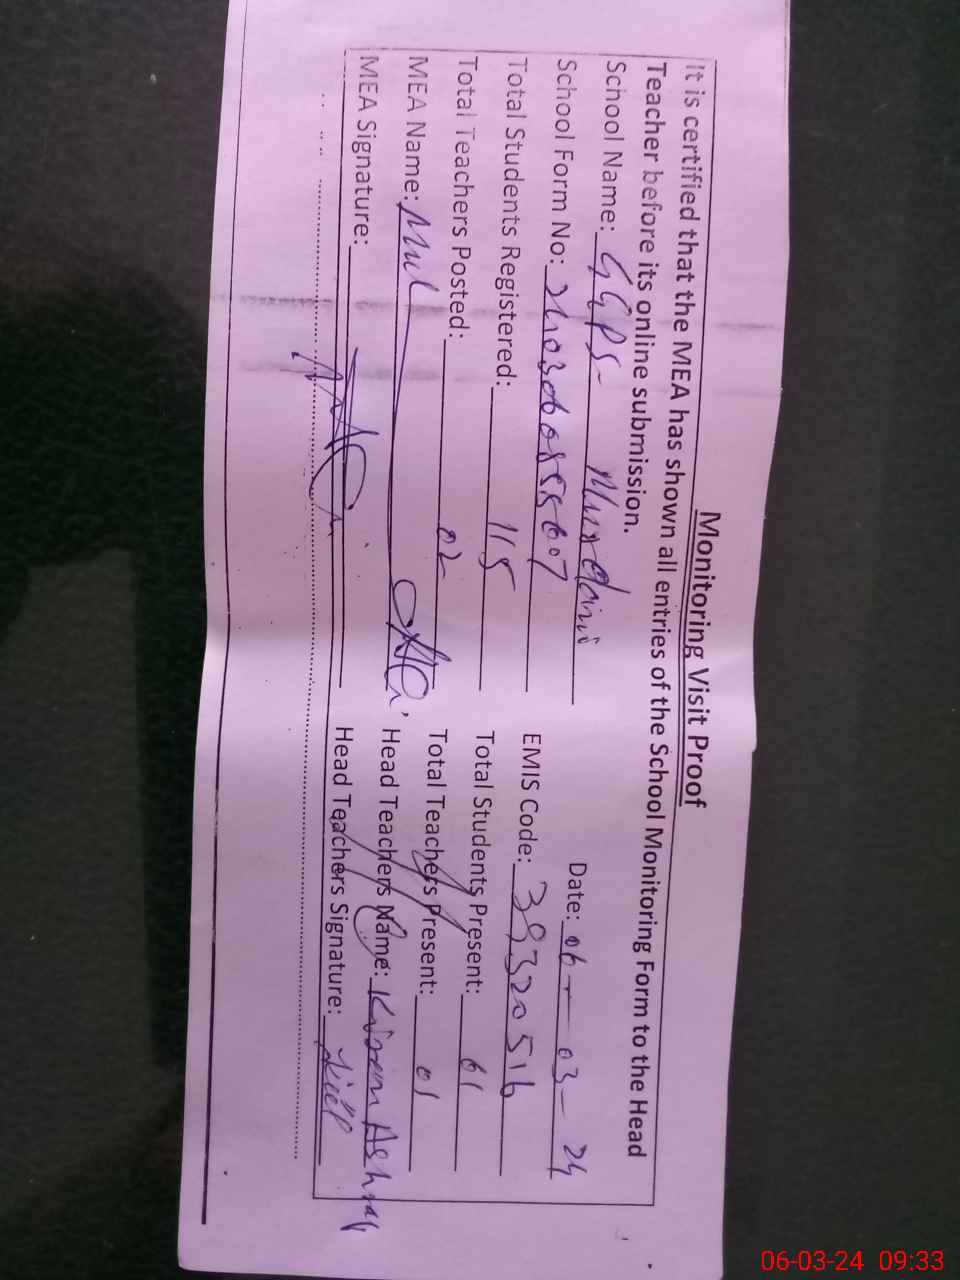 Monitoring Visit Proof
It is certified that the MEA has shown all entries of the School Monitoring Form to the Head
Teacher before its online submission.
Date: 06 - 03 - 24
School Name: GGPS
EMIS Code: 39320516
School Form No:
Total Students Registered: 115
Total Students Present: 61
Total Teachers Posted: 02
Total Teachers Present: 01
MEA Name:
Head Teachers Name: Ashraf
MEA Signature:
Head Teachers Signature:
06-03-24 09:33